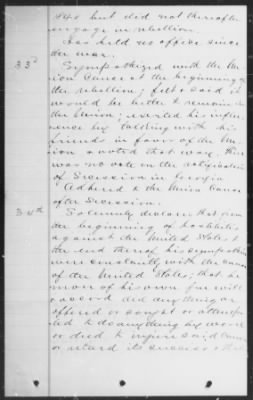 but did not thereafter
engage in rebellion.
Has held no office since
the war.
33d
Sympathized with the Un-
ion Cause at the beginning of
the rebellion; felt & said it
would be better to remain in
the Union; exerted his influ-
ence by talking with his
friends in favor of the Un-
ion & voted that way. There
was no vote on the ratification
of Secession in Georgia
Adhered to the Union Cause
after Secession.
34th
Solemnly declares that from
the beginning of hostilities
against the United States to
the end thereof his sympathies
were constantly with the cause
of the United States; that he
never of his own free will
& accord did anything or
offered or sought or attemp-
ted to do anything by word
or deed to injure said Cause
or retard its success & that